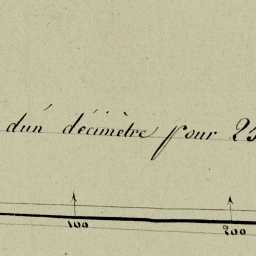 d'un décimètre pour 25
100 200